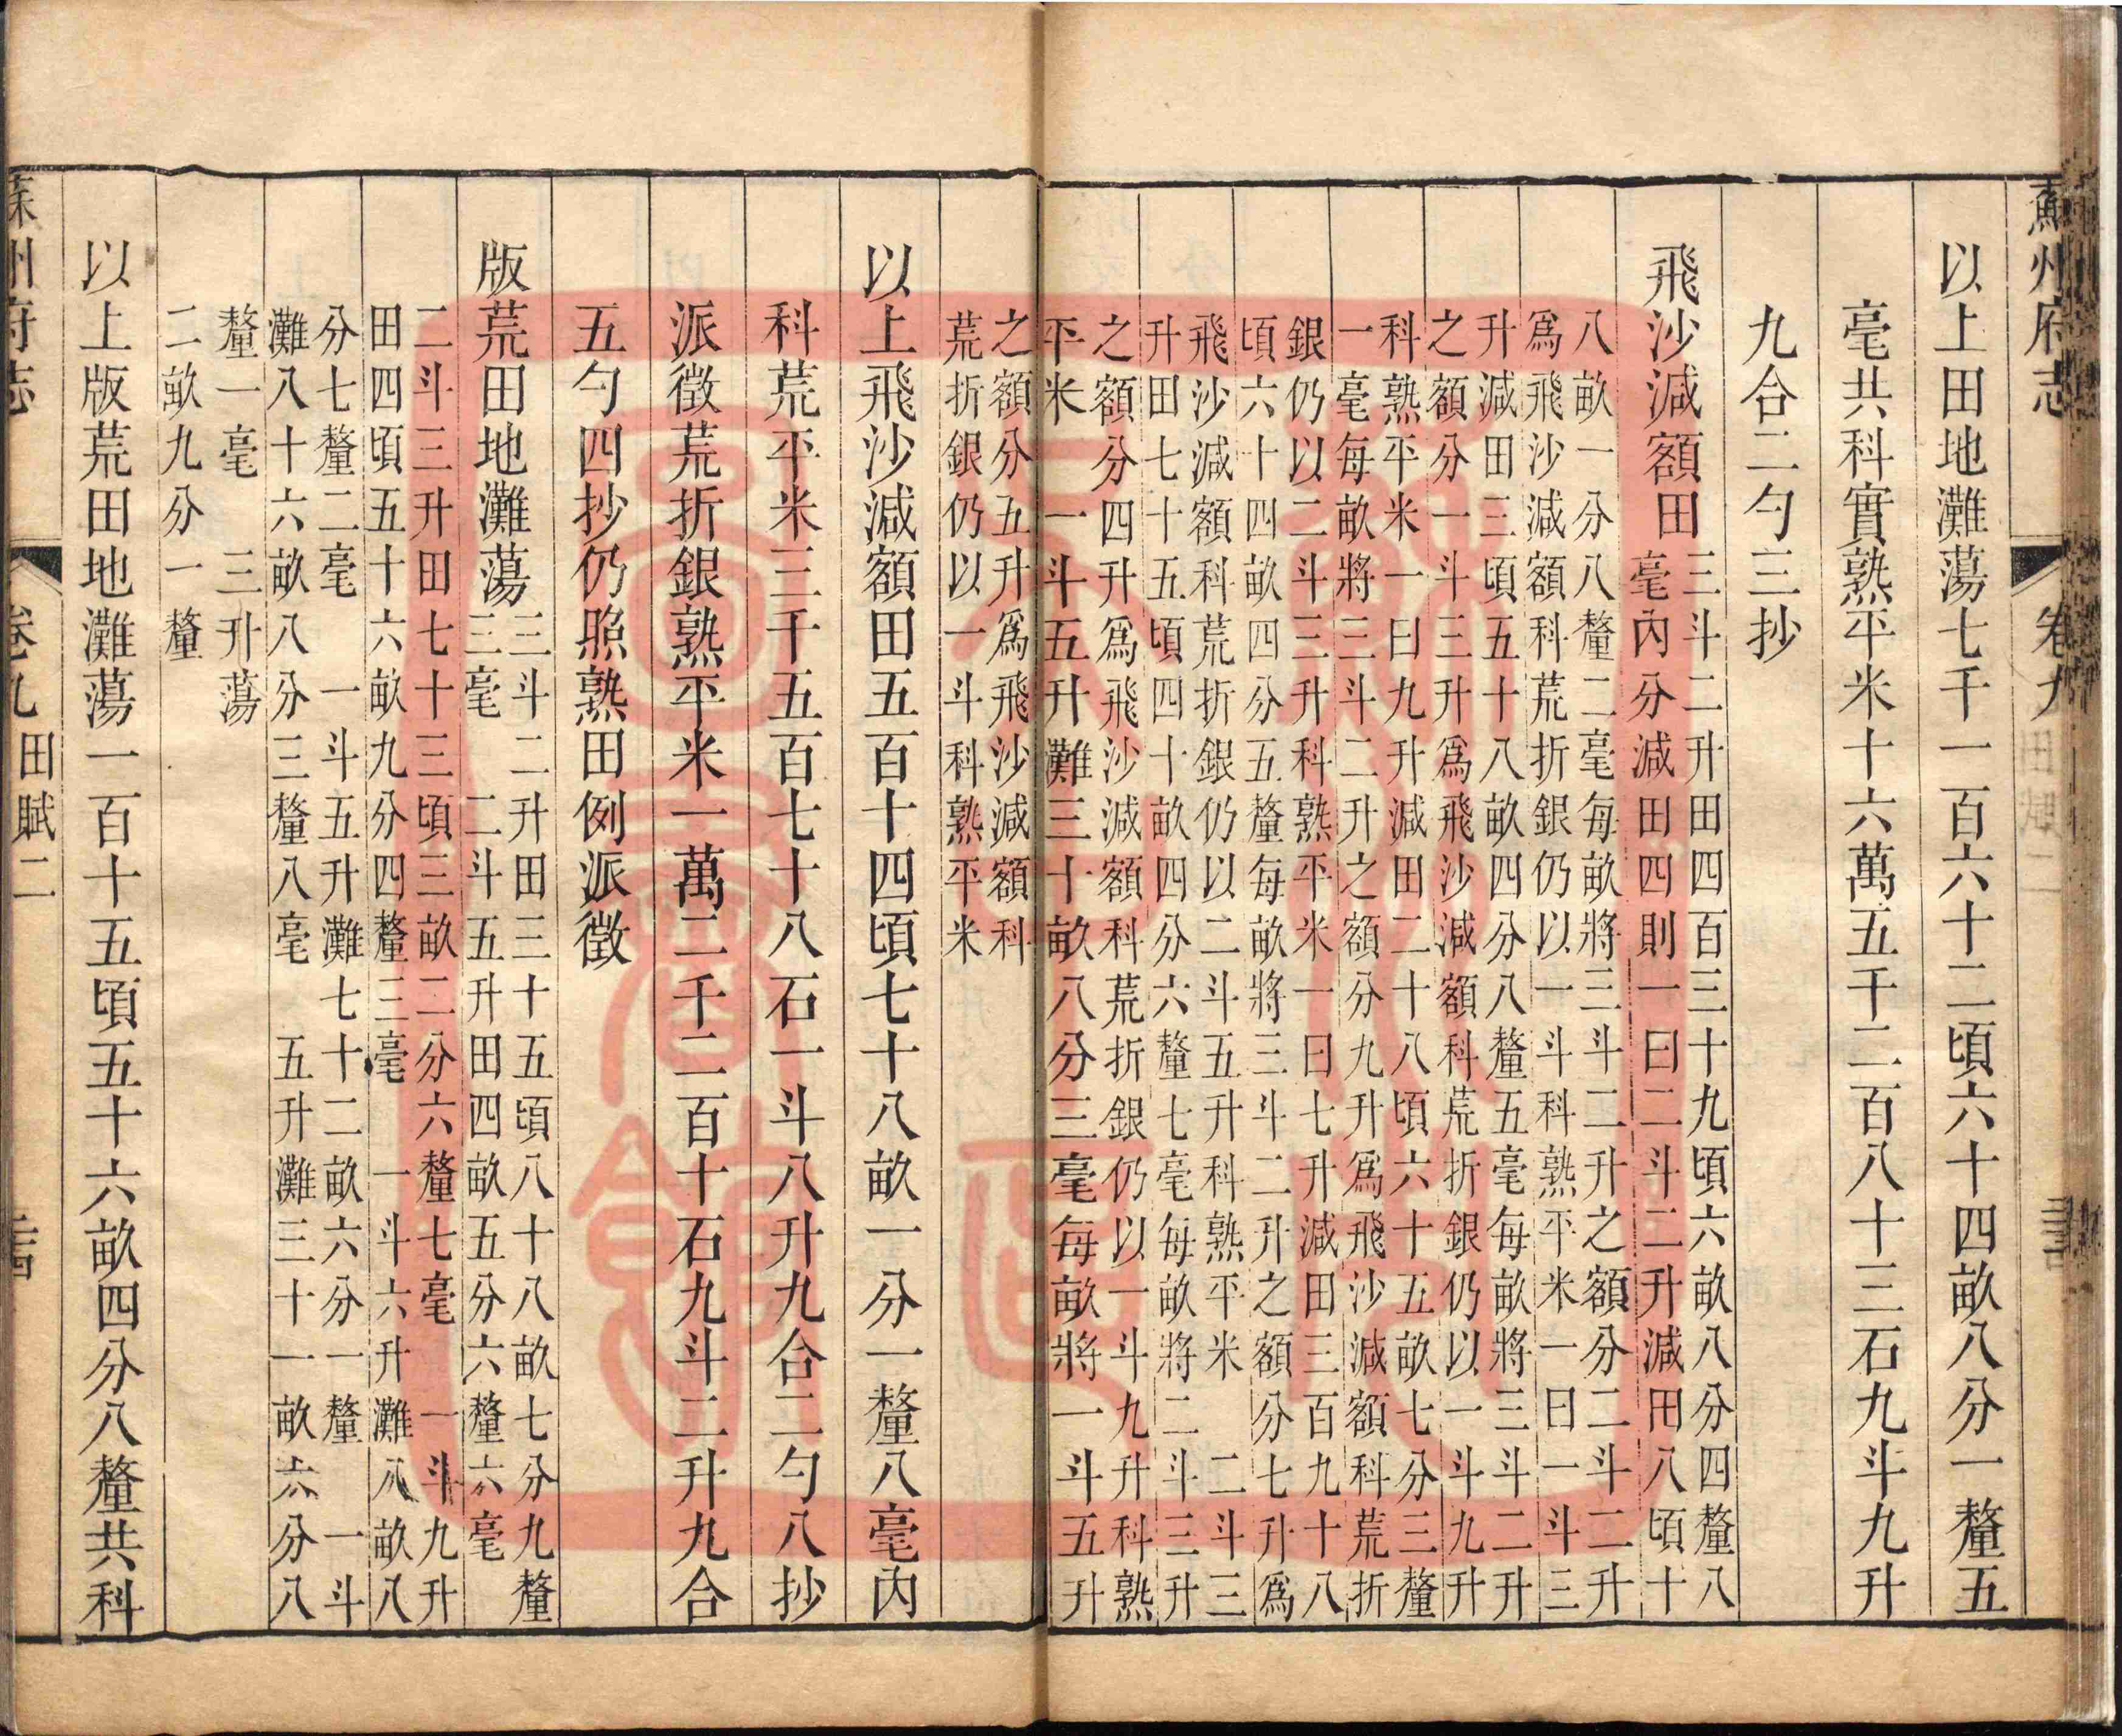 蘇州府志 卷九
以上田地灘蕩七千一百六十二頃六十四畝八分一釐五
毫共科實熟平米十六萬五千二百八十三石九斗九升
九合二勺三抄
飛沙減額田
三斗二升田四百三十九頃六畝八分四釐八
毫內分減田四則一曰二斗二升減田八頃十
八畝一分八釐二毫每畝將三斗二升之額分二斗二升
爲飛沙減額科荒折銀仍以一斗科熟平米一曰一斗三
升減田三頃五十八畝四分八釐五毫每畝將三斗二升
之額分一斗三升爲飛沙減額科荒折銀仍以一斗九升
科熟平米一曰九升減田二十八頃六十五畝七分三釐
一毫每畝將三斗二升之額分九升爲飛沙減額科荒折
銀仍以二斗三升科熟平米一曰七升減田三百九十八
頃六十四畝四分五釐每畝將三斗二升之額分七升爲
飛沙減額科荒折銀仍以二斗五升科熟平米 二斗三
升田七十五頃四十畝四分六釐七毫每畝將二斗三升
之額分四升爲飛沙減額科荒折銀仍以一斗九升科熟
平米一斗五升灘三十畝八分三毫每畝將一斗五升
之額分五升爲飛沙減額科
荒折銀仍以一斗科熟平米
以上飛沙減額田五百十四頃七十八畝一分一釐八毫內
科荒平米三千五百七十八石一斗八升九合二勺八抄
派徵荒折銀熟平米一萬二千二百十石九斗二升九合
五勺四抄仍照熟田例派徵
版荒田地灘蕩
三斗二升田三十五頃八十八畝七分九釐
三毫 二斗五升田四畝五分六釐六毫
二斗三升田七十三頃三畝二分六釐七毫 一斗九升
田四頃五十六畝九分四釐三毫 一斗六升灘八畝八
分七釐二毫 一斗五升灘七十二畝六分一釐 一斗
灘八十六畝八分三釐八毫 五升灘三十一畝六分八
釐一毫 三升蕩
二畝九分一釐
以上版荒田地灘蕩一百十五頃五十六畝四分八釐共科
蘇州府志 卷九 田賦二